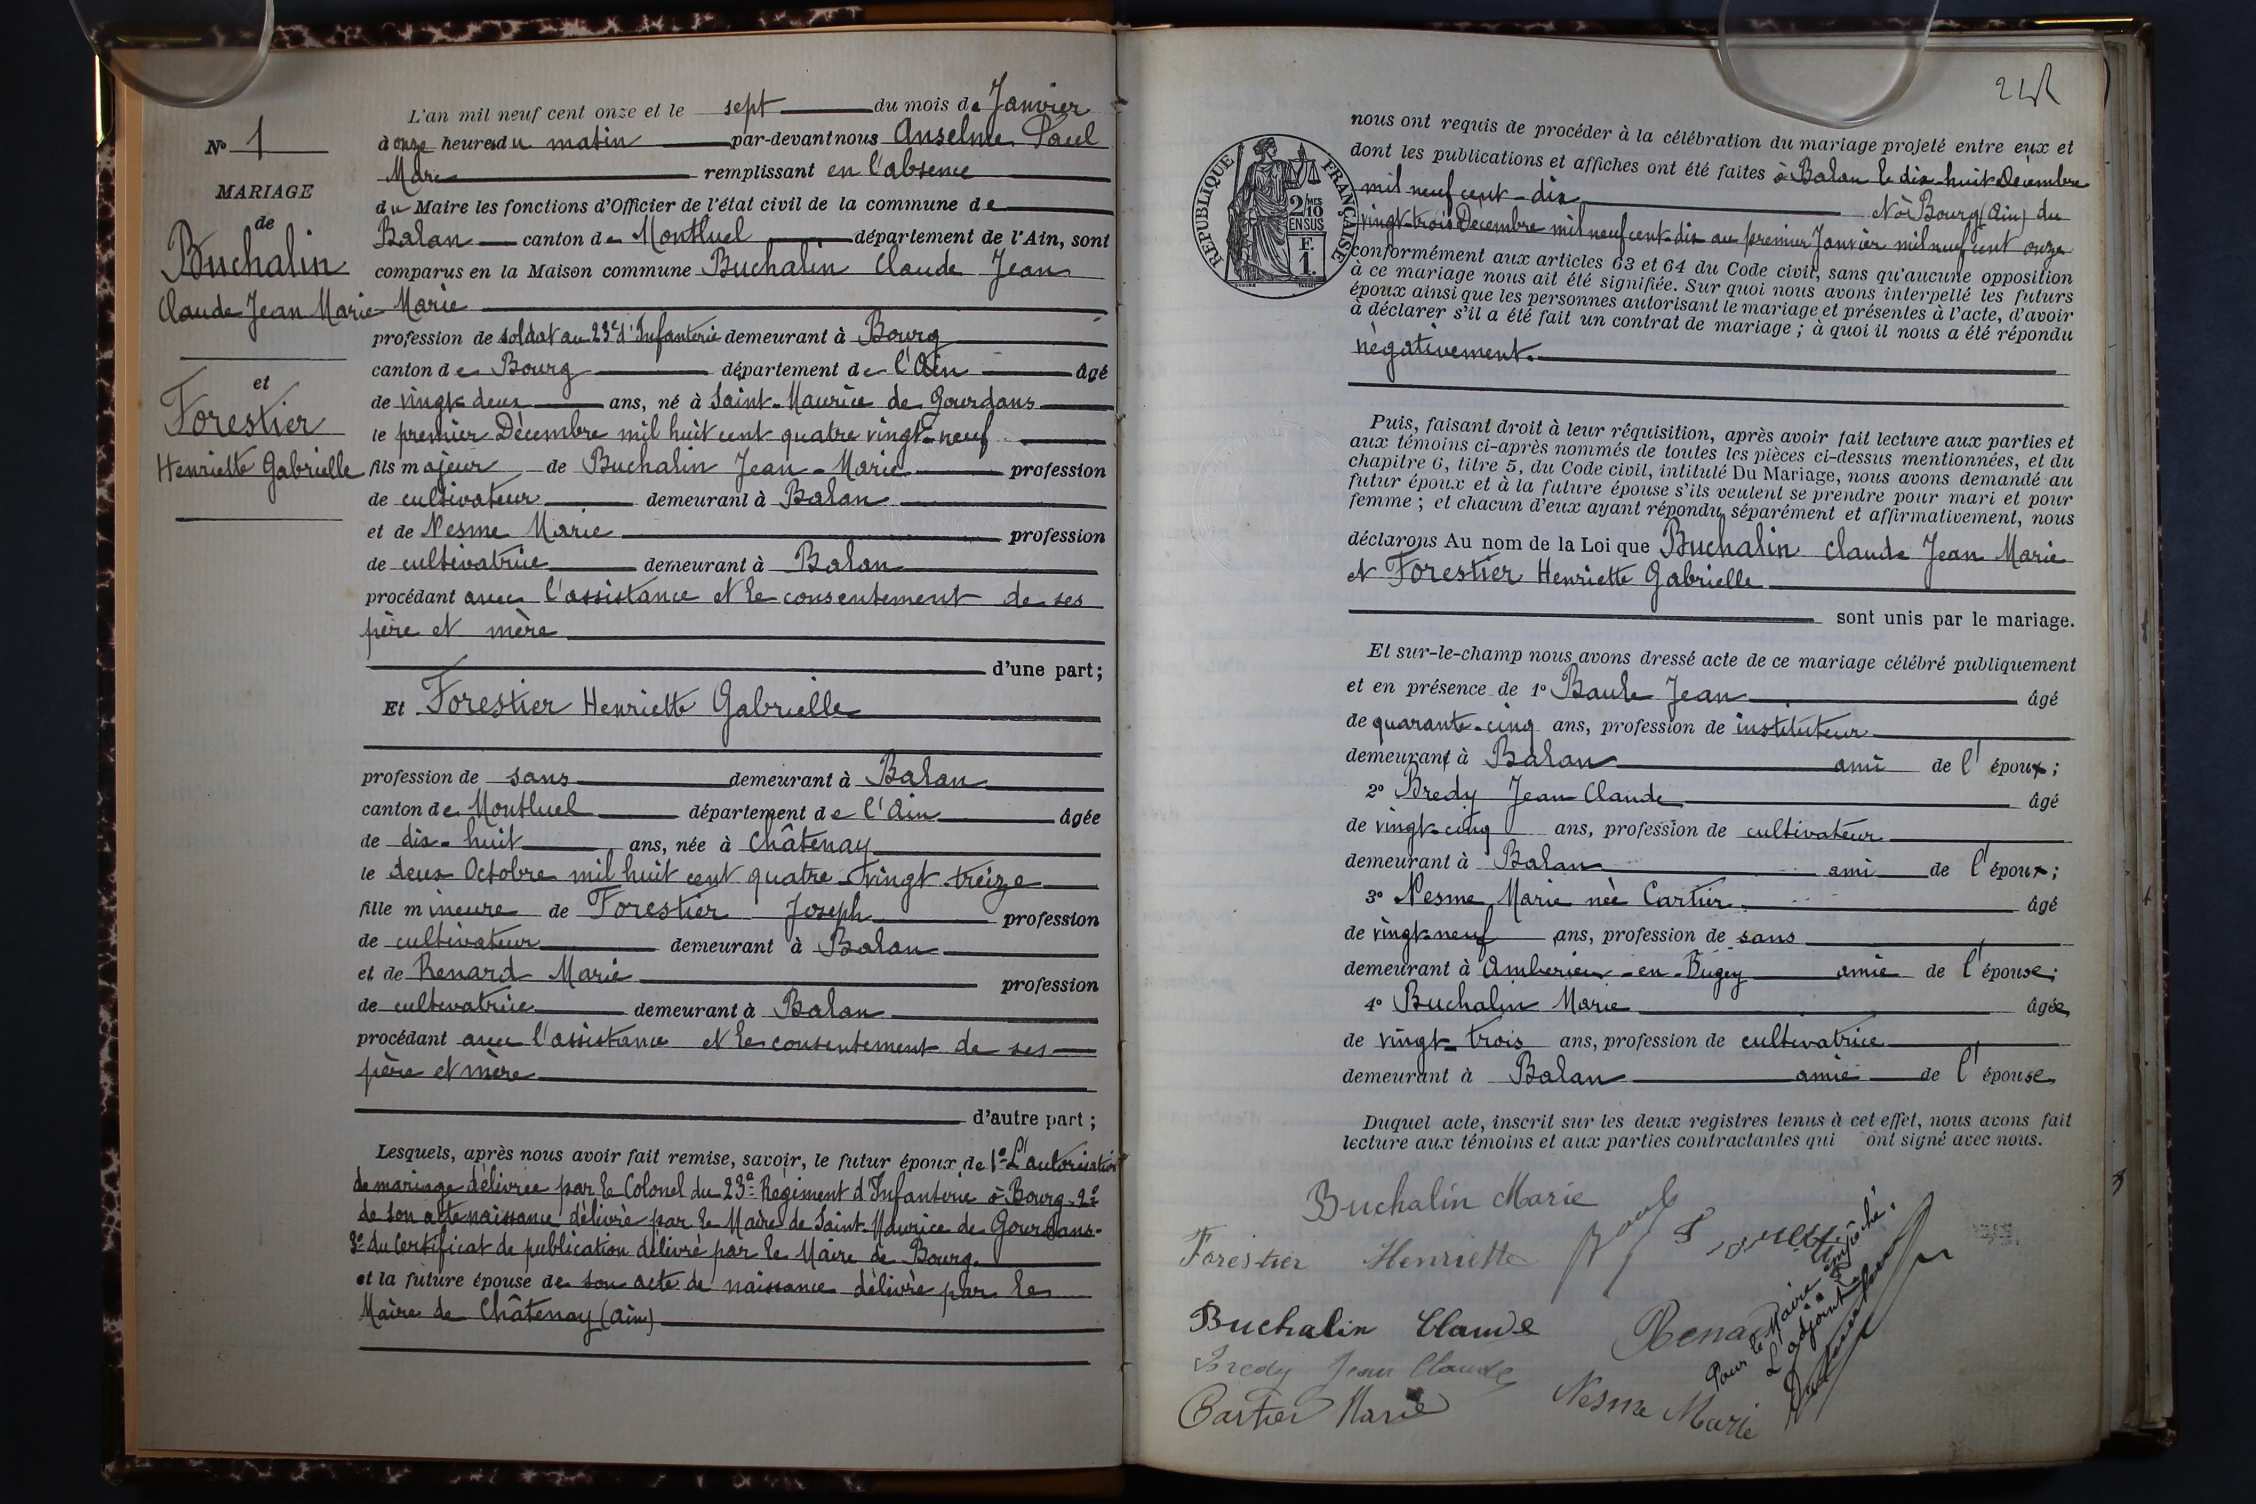 N° 1
MARIAGE
de
Buchalin
Claude Jean Marie
et
Forestier
Henriette Gabrielle
L'an mil neuf cent onze et le sept du mois de Janvier
à onze heures du matin par-devant nous Anselme Paul
Marc remplissant en l'absence
du Maire les fonctions d'Officier de l'état civil de la commune de
Balan canton de Montluel département de l'Ain, sont
comparus en la Maison commune Buchalin Claude Jean
Marie
profession de soldat au 23e d'Infanterie demeurant à Bourg
canton de Bourg département de l'Ain âgé
de vingt-deux ans, né à Saint-Maurice de Gourdans
le premier Décembre mil huit cent quatre vingt-neuf
fils majeur de Buchalin Jean-Marie profession
de cultivateur demeurant à Balan
et de Nesme Marie profession
de cultivatrice demeurant à Balan
procédant avec l'assistance et le consentement de ses
père et mère
d'une part;
Et Forestier Henriette Gabrielle
profession de sans demeurant à Balan
canton de Montluel département de l'Ain âgée
de dix-huit ans, née à Châtenay
le deux Octobre mil huit cent quatre-vingt-treize
fille mineure de Forestier Joseph profession
de cultivateur demeurant à Balan
et de Renard Marie profession
de cultivatrice demeurant à Balan
procédant avec l'assistance et le consentement de ses
père et mère
d'autre part;
Lesquels, après nous avoir fait remise, savoir, le futur époux de 1°- L'autorisation
de mariage délivrée par le Colonel du 23e Régiment d'Infanterie à Bourg. 2°
de son acte naissance délivré par le Maire de Saint-Maurice de Gourdans-
3° du Certificat de publication délivré par le Maire de Bourg.
et la future épouse de son acte de naissance délivré par le
Maire de Châtenay (Ain)
RÉPUBLIQUE FRANÇAISE
2/10MES
EN SUS
F.
1.
nous ont requis de procéder à la célébration du mariage projeté entre eux et
dont les publications et affiches ont été faites à Balan le dix-huit Décembre
mil neuf cent-dix et à Bourg (Ain) du
vingt-trois Décembre mil neuf cent-dix au premier Janvier mil neuf cent onze
conformément aux articles 63 et 64 du Code civil, sans qu'aucune opposition
à ce mariage nous ait été signifiée. Sur quoi nous avons interpellé les futurs
époux ainsi que les personnes autorisant le mariage et présentes à l'acte, d'avoir
à déclarer s'il a été fait un contrat de mariage; à quoi il nous a été répondu
négativement.
Puis, faisant droit à leur réquisition, après avoir fait lecture aux parties et
aux témoins ci-après nommés de toutes les pièces ci-dessus mentionnées, et du
chapitre 6, titre 5, du Code civil, intitulé Du Mariage, nous avons demandé au
futur époux et à la future épouse s'ils veulent se prendre pour mari et pour
femme; et chacun d'eux ayant répondu séparément et affirmativement, nous
déclarons Au nom de la Loi que Buchalin Claude Jean Marie
et Forestier Henriette Gabrielle
sont unis par le mariage.
Et sur-le-champ nous avons dressé acte de ce mariage célébré publiquement
et en présence de 1° Baule Jean âgé
de quarante-cinq ans, profession de instituteur
demeurant à Balan ami de l'époux;
2° Bredy Jean Claude âgé
de vingt-cinq ans, profession de cultivateur
demeurant à Balan ami de l'époux;
3° Nesme Marie née Cartier âgé
de vingt-neuf ans, profession de sans
demeurant à Amberieu-en-Bugey amie de l'épouse;
4° Buchalin Marie âgée
de vingt-trois ans, profession de cultivatrice
demeurant à Balan amie de l'épouse
Duquel acte, inscrit sur les deux registres tenus à cet effet, nous avons fait
lecture aux témoins et aux parties contractantes qui ont signé avec nous.
Buchalin Marie
Forestier Henriette
Buchalin Claude
Renard
Bredy Jean Claude
Cartier Marie
Nesme Marie
Pour le Maire empêché.
L'adjoint